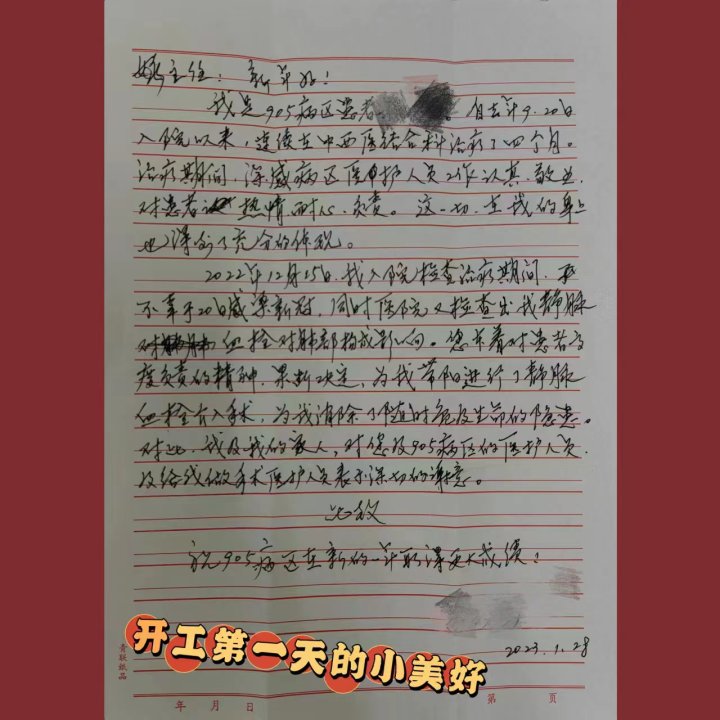 主任：新年好！
我是905病区患者 。自去年9.20日
入院以来，连续在中西医结合科治疗了四个月。
治疗期间，深感病区医护人员工作认真、敬业，
对患者 热情、耐心、负责。这一切，在我的身上
也得到了充分的体现。
2022年12月15日，我入院检查治疗期间，
不幸于20日感染新冠，同时医院又检查出我静脉
血栓对肺部构成影响。您本着对患者高
度负责的精神，果断决定，为我带阳进行了静脉
血栓介入手术，为我消除了随时危及生命的隐患。
对此，我及我的家人，对您及905病区的医护人员，
及给我做手术医护人员表示深切的谢意。
此致
祝905病区在新的一年取得更大成绩！
2023.1.28
开工第一天的小美好
青联纸品
年 月 日 第 页